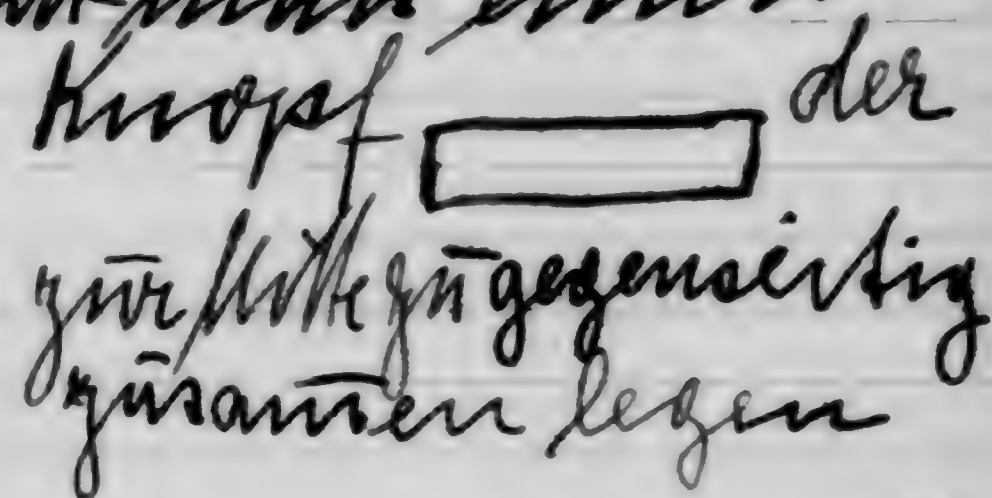 Knopf der
zur Mitte zu gegenseitig
zusam̅en legen